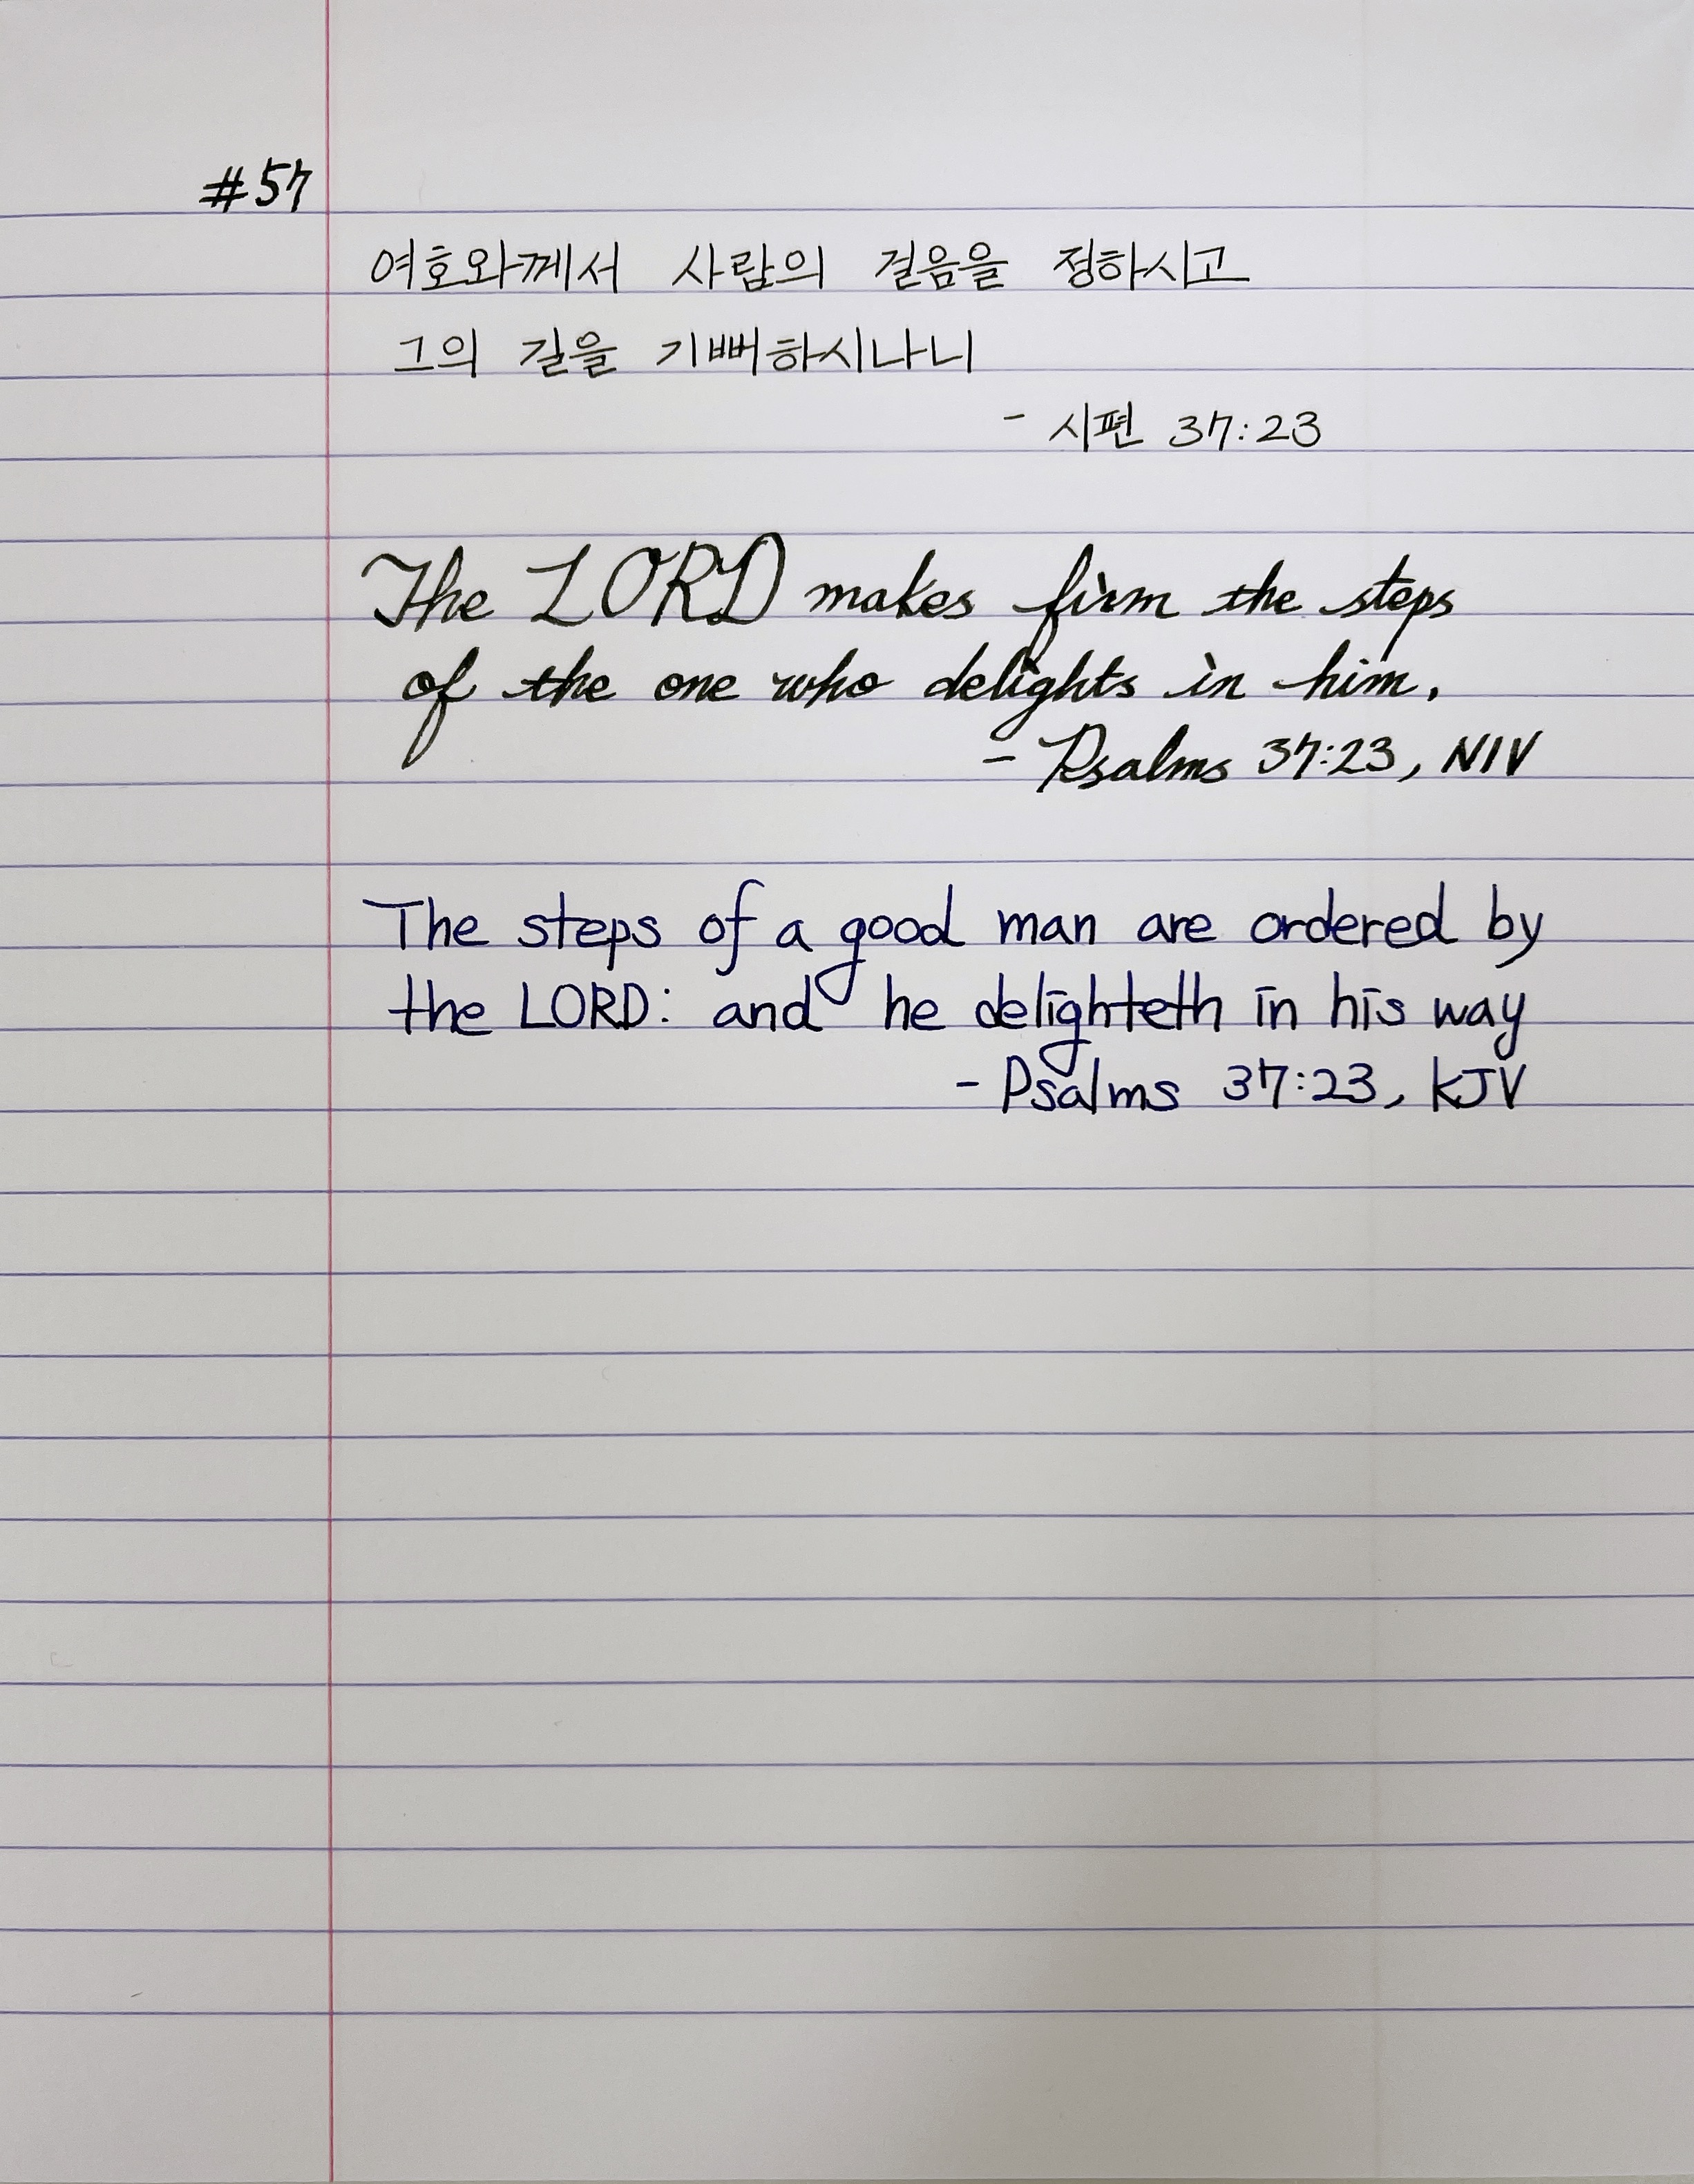 #57
여호와께서 사람의 걸음을 정하시고
그의 길을 기뻐하시나니
- 시편 37:23
The LORD makes firm the steps
of the one who delights in him.
- Psalms 37:23, NIV
The steps of a good man are ordered by
the LORD: and he delighteth in his way
- Psalms 37:23, KJV